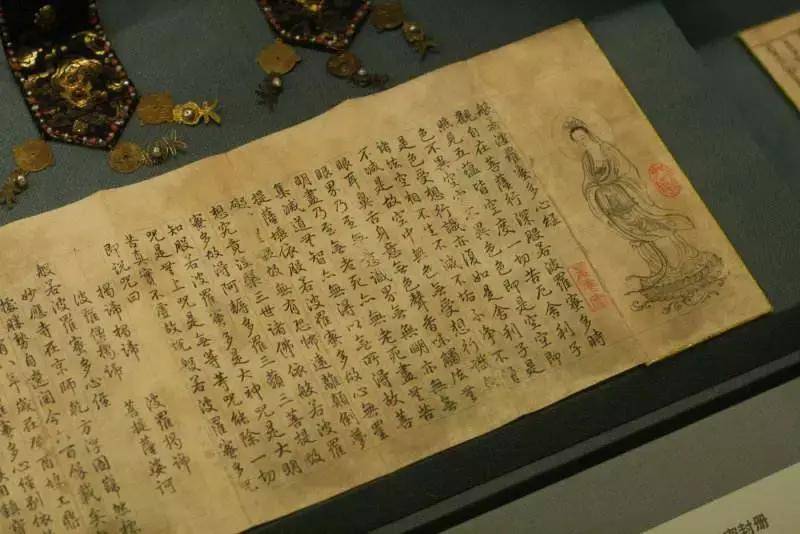 般若波羅蜜多心經
觀自在菩薩行深般若波羅蜜多時
照見五蘊皆空度一切苦厄舍利子
色不異空空不異色色即是空空即
是色受想行識亦復如是舍利子是
諸法空相不生不滅不垢不淨不增
不減是故空中無色無受想行識無
眼耳鼻舌身意無色聲香味觸法無
眼界乃至無意識界無無明亦無無
明盡乃至無老死亦無老死盡無苦
集滅道無智亦無得以無所得故菩
提薩埵依般若波羅蜜多故心無罣
礙無罣礙故無有恐怖遠離顛倒夢
想究竟涅槃三世諸佛依般若波羅
蜜多故得阿耨多羅三藐三菩提故
知般若波羅蜜多是大神咒是大明
咒是無上咒是無等等咒能除一切
苦真實不虛故說般若波羅蜜多咒
即說咒曰
揭諦揭諦 波羅揭諦
波羅僧揭諦 菩提薩婆訶
般若波羅蜜多心經
妙應寺在京師乾方浮圖巋然標
勝勢自遼閱今六百餘載矣
封册